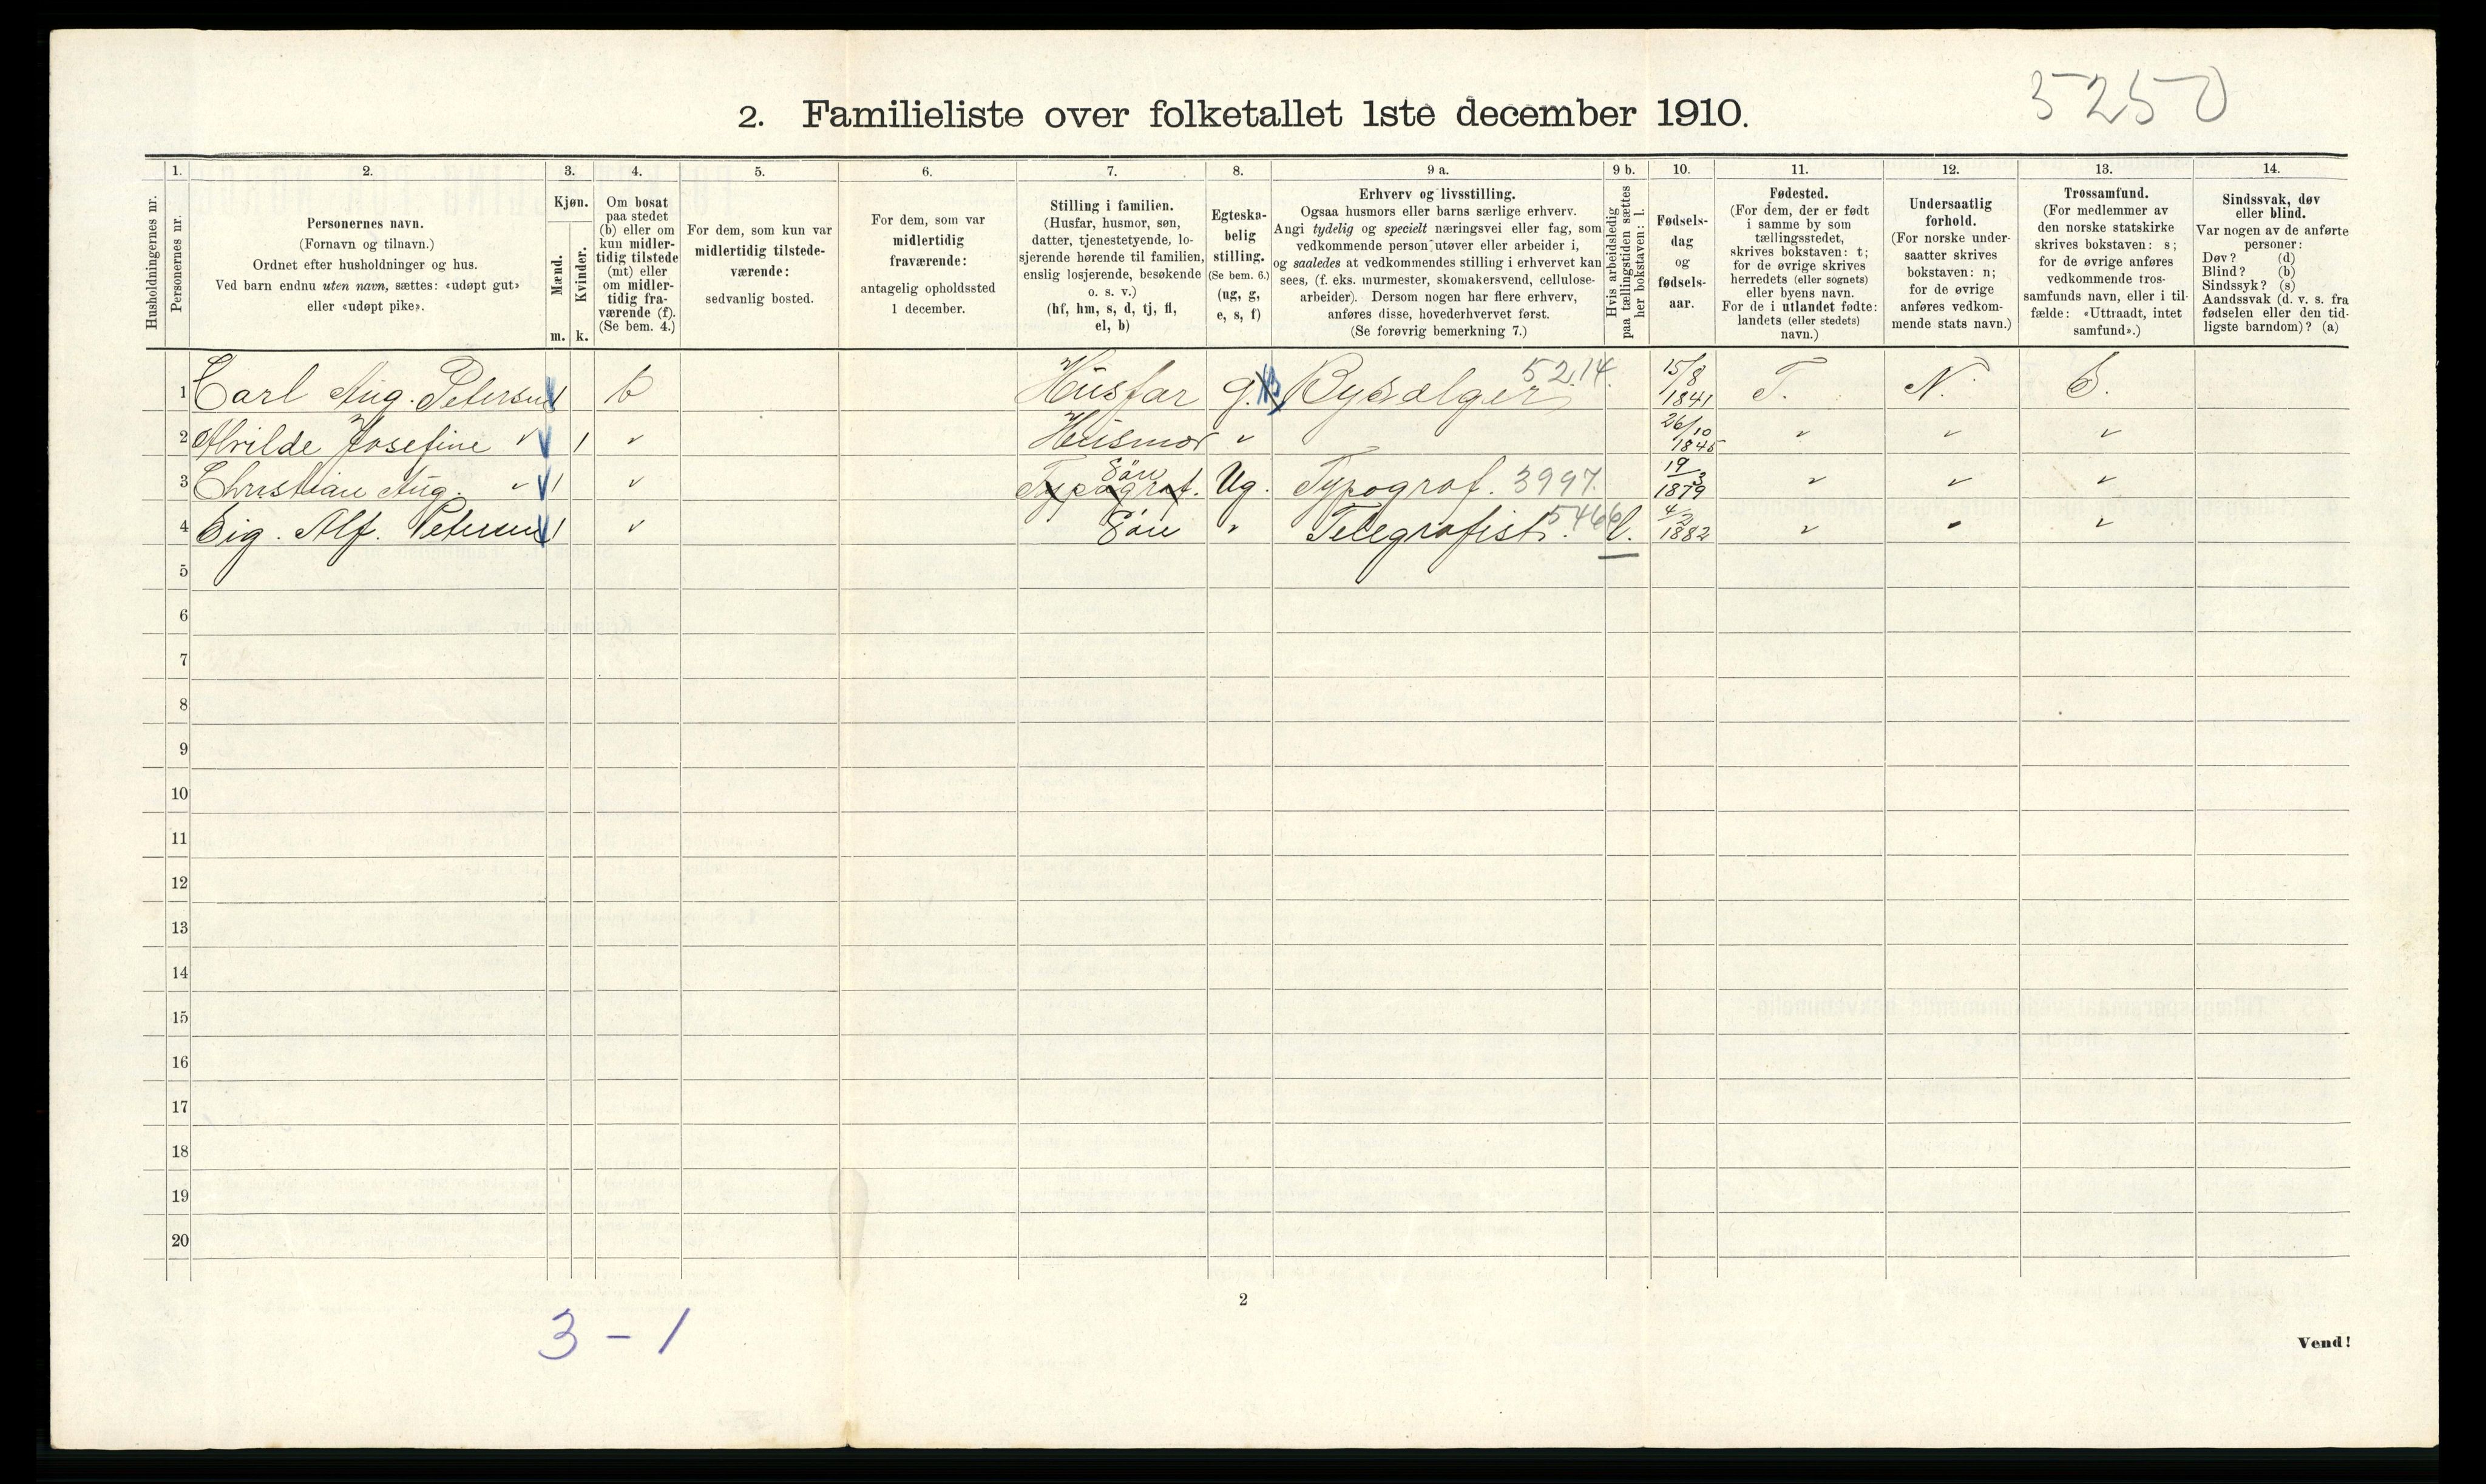 5250
2. Familieliste over folketallet 1ste december 1910.
1. 2. 3. 4. 5. 6. 7. 8. 9 a. 9 b. 10. 11. 12. 13. 14.
Husholdningernes nr.
Personernes nr.
Personernes navn.
(Fornavn og tilnavn.)
Ordnet efter husholdninger og hus.
Ved barn endnu uten navn, sættes: «udøpt gut»
eller «udøpt pike».
Kjøn.
Mænd.
Kvinder.
m. k.
Om bosat
paa stedet
(b) eller om
kun midler-
tidig tilstede
(mt) eller
om midler-
tidig fra-
værende (f).
(Se bem. 4.)
For dem, som kun var
midlertidig tilstede-
værende:
sedvanlig bosted.
For dem, som var
midlertidig
fraværende:
antagelig opholdssted
1 december.
Stilling i familien.
(Husfar, husmor, søn,
datter, tjenestetyende, lo-
sjerende hørende til familien,
enslig losjerende, besøkende
o. s. v.)
(hf, hm, s, d, tj, fl,
el, b)
Egteska-
belig
stilling.
(Se bem. 6.)
(ug, g,
e, s, f)
Erhverv og livsstilling.
Ogsaa husmors eller barns særlige erhverv.
Angi tydelig og specielt næringsvei eller fag, som
vedkommende person utøver eller arbeider i,
og saaledes at vedkommendes stilling i erhvervet kan
sees, (f. eks. murmester, skomakersvend, cellulose-
arbeider). Dersom nogen har flere erhverv,
anføres disse, hovederhvervet først.
(Se forøvrig bemerkning 7.)
Hvis arbeidsledig
paa tællingstiden sættes
her bokstaven: l.
Fødsels-
dag
og
fødsels-
aar.
Fødested.
(For dem, der er født
i samme by som
tællingsstedet,
skrives bokstaven: t;
for de øvrige skrives
herredets (eller sognets)
eller byens navn.
For de i utlandet fødte:
landets (eller stedets)
navn.)
Undersaatlig
forhold.
(For norske under-
saatter skrives
bokstaven: n;
for de øvrige
anføres vedkom-
mende stats navn.)
Trossamfund.
(For medlemmer av
den norske statskirke
skrives bokstaven: s;
for de øvrige anføres
vedkommende tros-
samfunds navn, eller i til-
fælde: «Uttraadt, intet
samfund».)
Sindssvak, døv
eller blind.
Var nogen av de anførte
personer:
Døv? (d)
Blind? (b)
Sindssyk? (s)
Aandssvak (d. v. s. fra
fødselen eller den tid-
ligste barndom)? (a)
1 Carl Aug. Petersen 1 b Husfar g. Bysælger 5214. 15/8 1841 T. N. S.
2 Alvilde Josefine " 1 " Husmor " 26/10 1845 " " "
3 Christian Aug. " 1 " Typograf. Sön Ug. Typograf. 3997. 19/3 1879 " " "
4 Sig. Alf. Petersen 1 " Sön " Telegrafist. 5466 l. 4/2 1882 " " "
5
6
7
8
9
10
11
12
13
14
15
16
17
18
19
20
2
3 - 1
Vend!